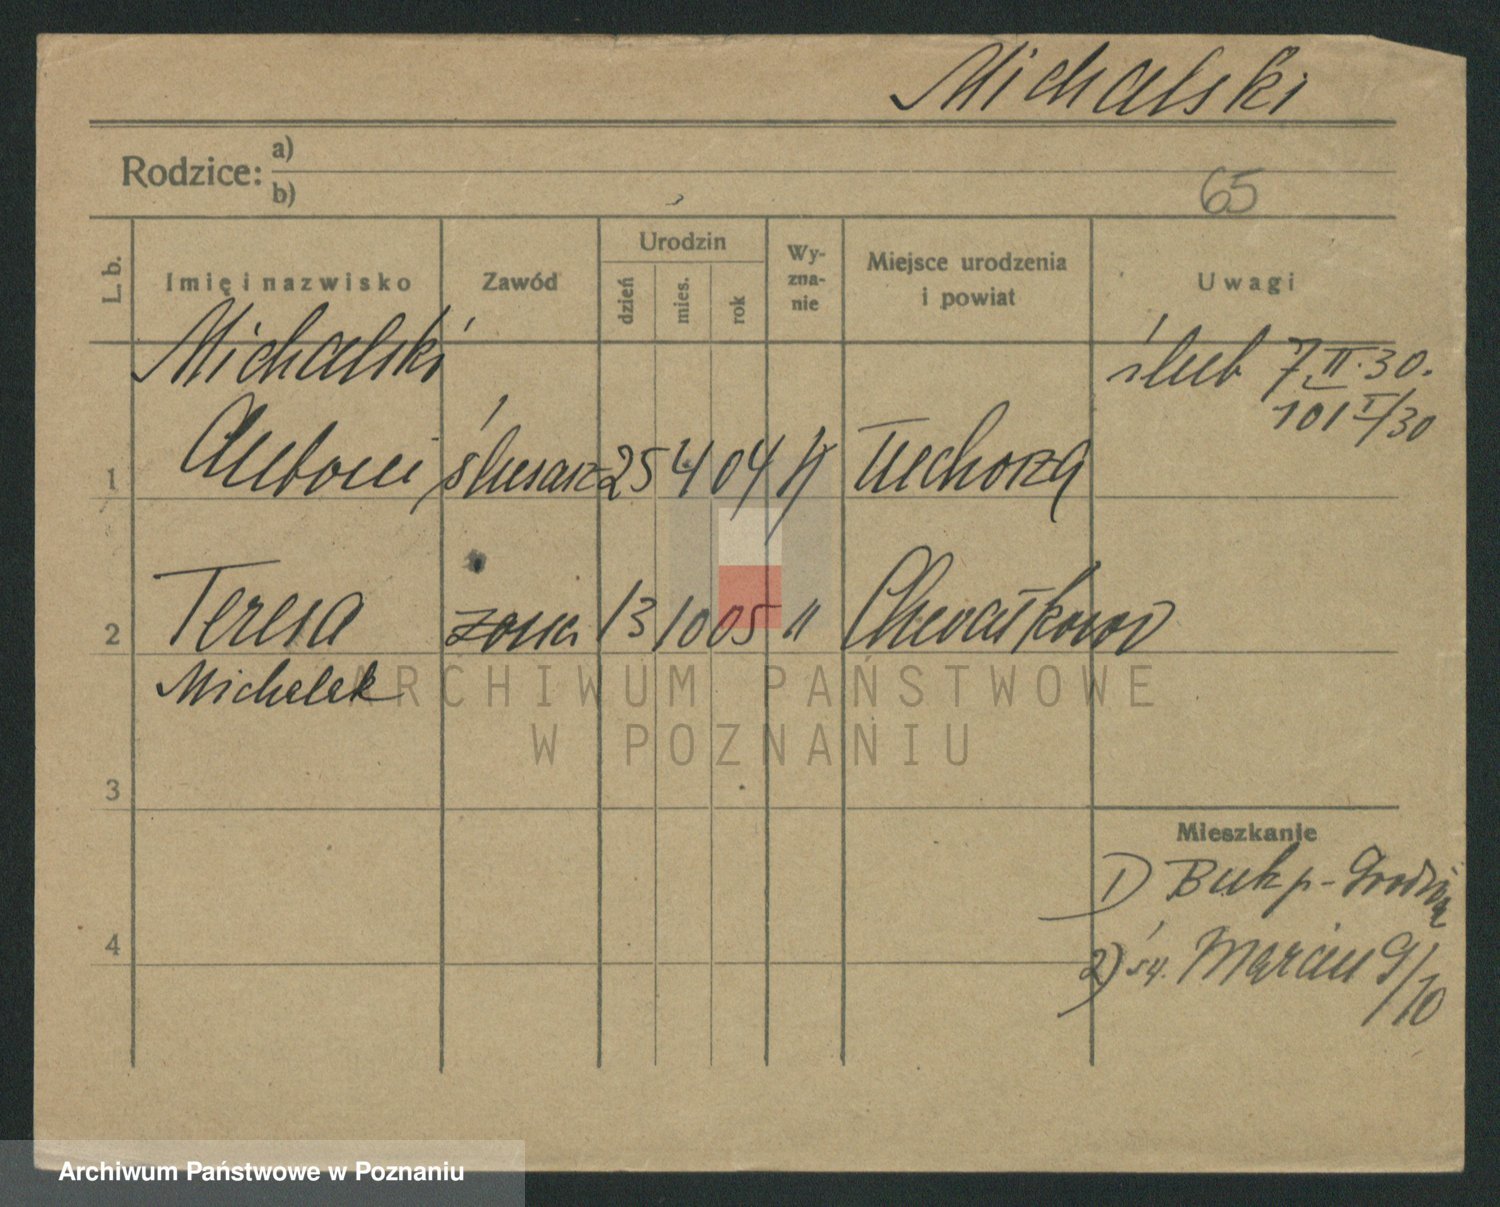 Michalski
Rodzice: a)
b)
65
L. b.
Imię i nazwisko
Zawód
Urodzin
dzień
mies.
rok
Wy-
zna-
nie
Miejsce urodzenia
i powiat
Uwagi
Michalski
ślub 7.II.30.
101 I/30
1 Antoni ślusarz 25 4 04 Tuchorza
2 Teresa żona 13 10 05 "
Michalak
3
Mieszkanie
1) Buk p-Grodzisk
4
2) św. Marcin 9/10
ARCHIWUM PAŃSTWOWE
W POZNANIU
Archiwum Państwowe w Poznaniu